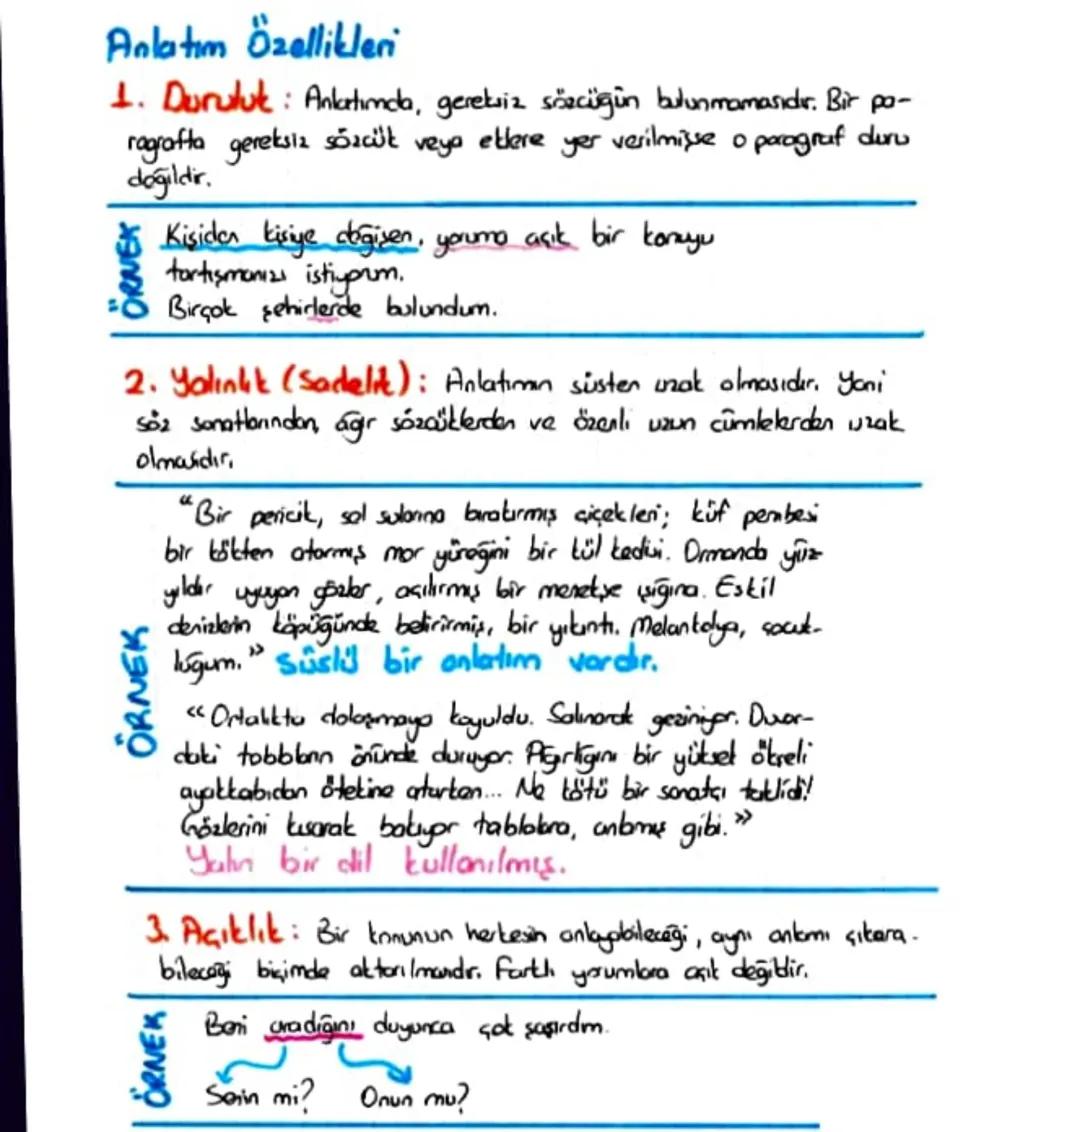 Anlatım Özellikleri
1. Duruluk : Anlatımda, gereksiz sözcüğün bulunmamasıdır. Bir pa-
ragrafta gereksiz sözcük veya eklere yer verilmişse o paragraf duru
değildir.
ÖRNEK
Kişiden kişiye değişen, yoruma açık bir konuyu
tartışmanızı istiyorum.
Birçok şehirlerde bulundum.
2. Yalınlık (Sadelik) : Anlatımın süsten uzak olmasıdır. Yani
söz sanatlarından, ağır sözcüklerden ve özenli uzun cümlelerden uzak
olmasıdır.
ÖRNEK
"Bir pericik, sal sularına bıraktırmış çiçekleri; küf pembesi
bir kökten atarmış mor yüreğini bir tül kedisi. Ormanda yüz
yıldır uyuyan gözler, açılırmış bir menekşe ışığına. Eskil
denizlerin köpüğünde belirirmiş, bir yıkıntı. Melankolya, çocuk-
luğum." Süslü bir anlatım vardır.
"Ortalıkta dolaşmaya koyuldu. Salınarak geziniyor. Duvar-
daki tabloların önünde duruyor. Ağırlığını bir yüksek ökçeli
ayakkabıdan ötekine atarken... Ne kötü bir sanatçı taklidi!
Gözlerini kısarak bakıyor tablolara, anlamış gibi."
Yalın bir dil kullanılmış.
3. Açıklık : Bir konunun herkesin anlayabileceği, aynı anlamı çıkara-
bileceği biçimde aktarılmasıdır. Farklı yorumlara açık değildir.
ÖRNEK
Beni aradığını duyunca çok şaşırdım.
Senin mi? Onun mu?